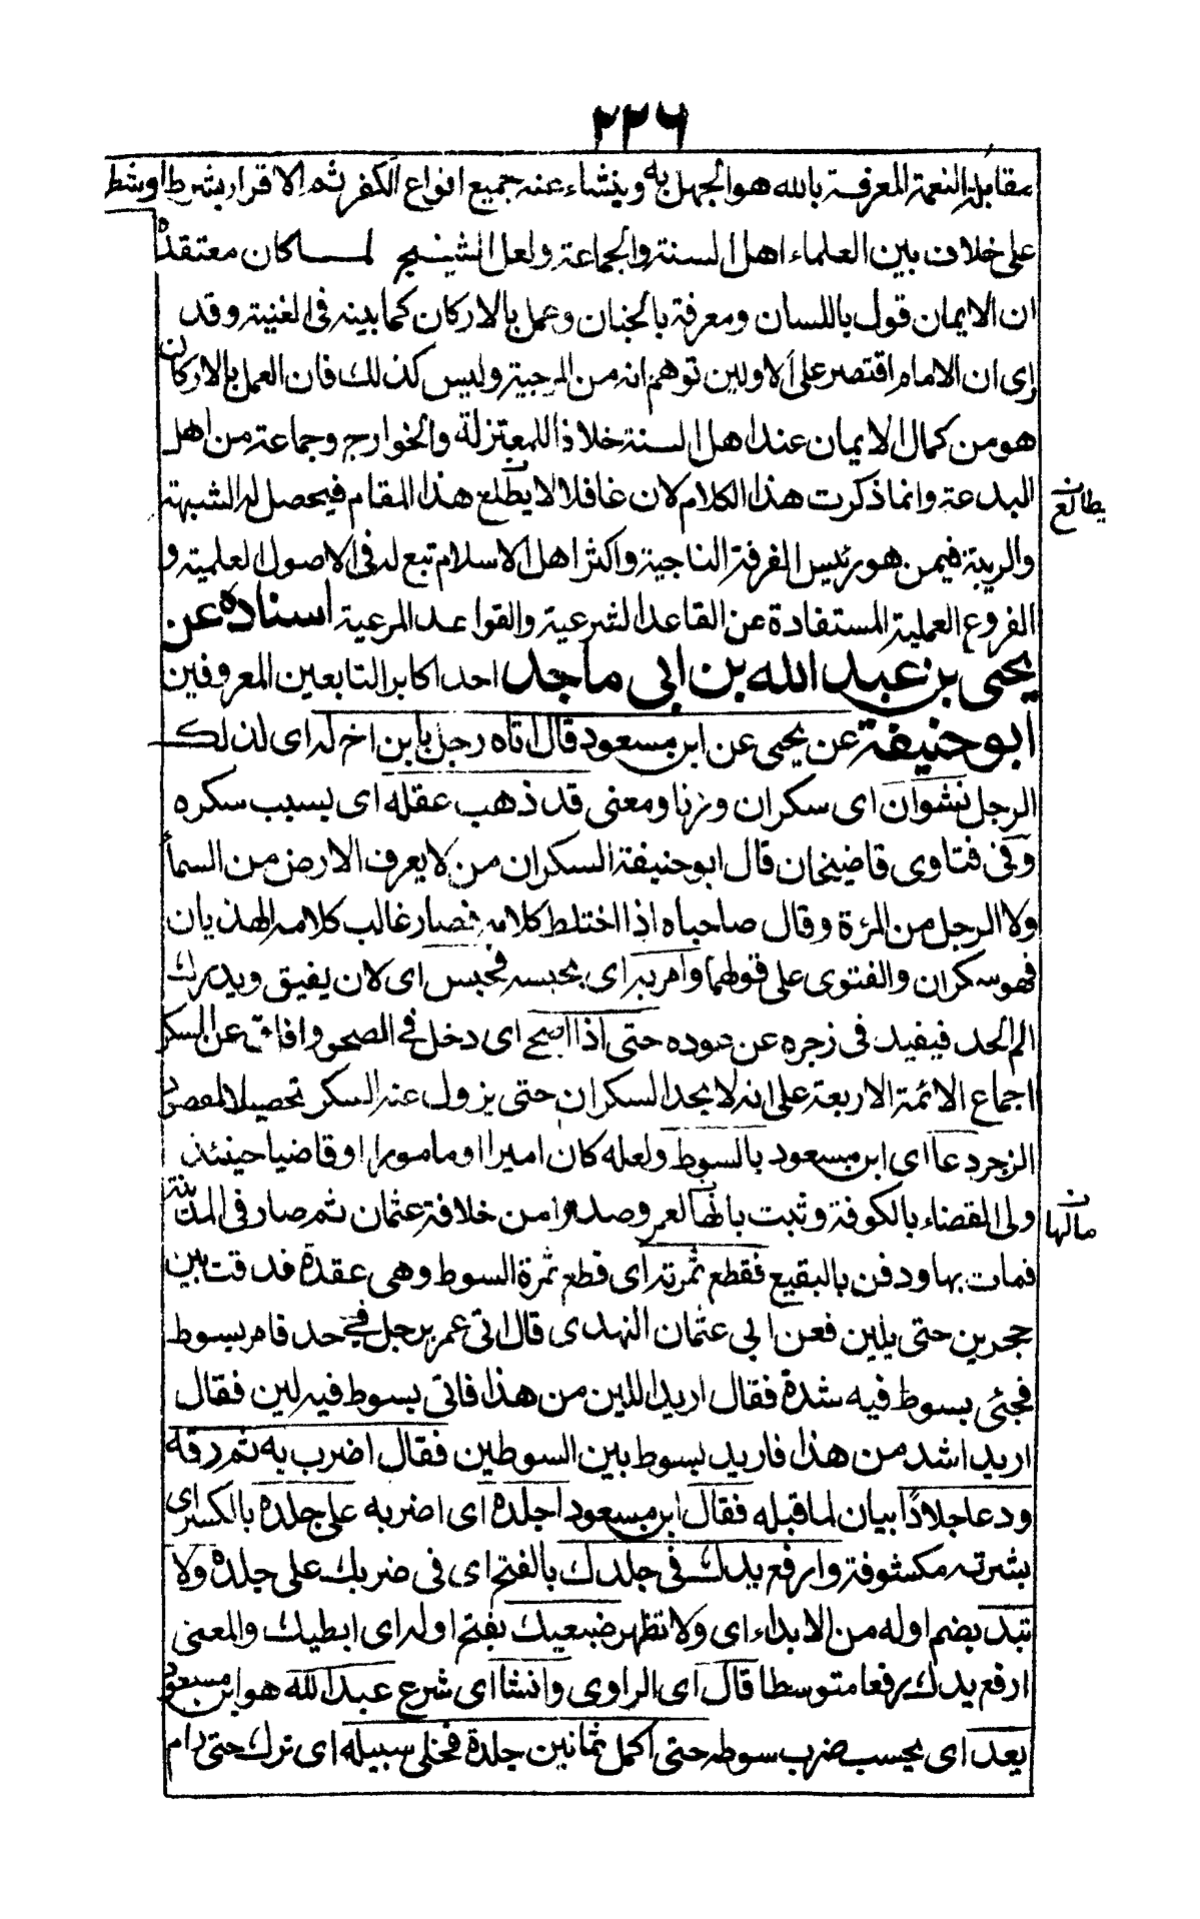 ٢٢٦
مقابلة النعمة المعرفة بالله هو الجهل به وينشاء عنه جميع انواع الكفر ثم الاقرار بشرط او شطر
على خلاف بين العلماء اهل السنة والجماعة ولعل الشيخ لما كان معتقده
ان الايمان قول باللسان ومعرفة بالجنان وعمل بالاركان كما بينه فى الغنية وقد
رى ان الامام اقتصر على الاولين توهم انه من المرجية وليس كذلك فان العمل بالاركان
هو من كمال الايمان عند اهل السنة خلافا للمعتزلة والخوارج وجماعة من اهل
البدعة وانما ذكرت هذا الكلام لان غافلا لا يطلع هذا المقام فيحصل له الشبهة
يطالع
والريبة فيمن هو رئيس الفرقة الناجية واكثر اهل الاسلام تبع له فى الاصول العلمية و
الفروع العملية المستفادة عن القاعد الشرعية والقواعد المرعية اسناده عن
يحيى بن عبد الله بن ابى ماجد احد اكابر التابعين المعروفين
ابو حنيفة عن يحيى عن ابن مسعود قال اتاه رجل بابن اخ له اى لذلك
الرجل نشوان اى سكران وزنا ومعنى قد ذهب عقله اى بسبب سكره
وفى فتاوى قاضيخان قال ابو حنيفة السكران من لا يعرف الارض من السمأ
ولا الرجل من المرٔة وقال صاحباه اذا اختلط كلامه فصار غالب كلامه الهذيان
فهو سكران والفتوى على قولهما وامر به اى بحبسه فحبس اى لان يفيق ويدرك
الم الحد فيفيد فى زجره عن عوده حتى اذا اصبح اى دخل فى الصحو وافاق عن السكر
اجماع الائمة الاربعة على انه لا يحد السكران حتى يزول عنه السكر تحصيلا لمقصود
الزجر دعا اى ابن مسعود بالسوط ولعله كان اميرا او مامورا او قاضيا حينئذ
ولى القضاء بالكوفة وثبت بالها لعمر وصدرا من خلافة عثمان ثم صار فى المدينة
مالها
فمات بها ودفن بالبقيع فقطع ثمرته اى قطع ثمرة السوط وهى عقدة فدقت بين
حجرين حتى يلين فعن ابى عثمان النهدى قال اتى عمر برجل فى حد فامر بسوط
فجئى بسوط فيه شدة فقال اريد الين من هذا فاتى بسوط فيه لين فقال
اريد اشد من هذا فاريد بسوط بين السوطين فقال اضرب به ثم رقه
ودعا جلادًا بيان لما قبله فقال ابن مسعود اجلده اى اضربه على جلده بالكسر اى
بشرته مكشوفة وارفع يدك فى جلدك بالفتح اى فى ضربك على جلده ولا
تبد بضم اوله من الابداء اى ولا تظهر ضبعيك بفتح اوله اى ابطيك والمعنى
ارفع يدك رفعا متوسطا قال اى الراوى وانشا اى شرع عبد الله هو ابن مسعود
يعد اى بحسب ضرب سوطه حتى اكمل ثمانين جلدة فخلى سبيله اى ترك حتى رام